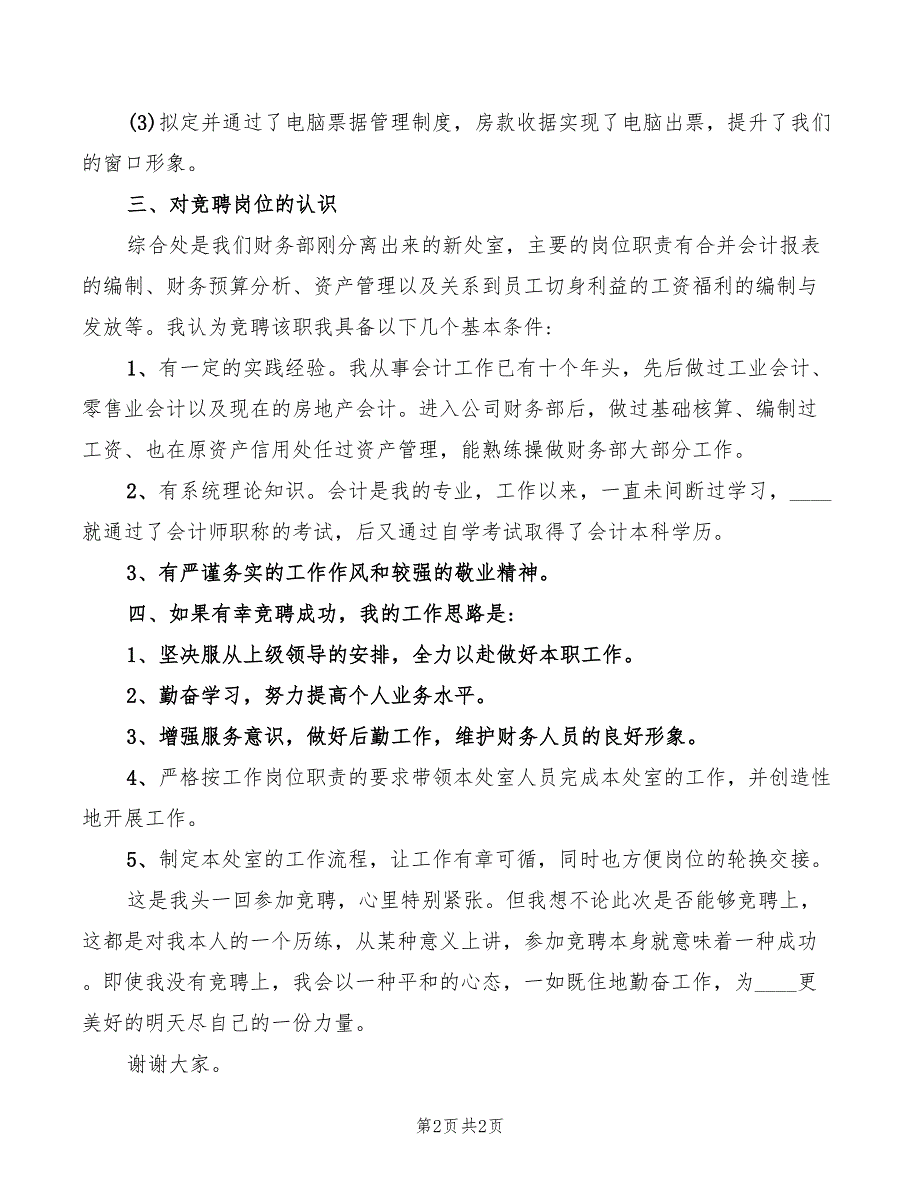 (3)拟定并通过了电脑票据管理制度，房款收据实现了电脑出票，提升了我们
的窗口形象。
三、对竞聘岗位的认识
综合处是我们财务部刚分离出来的新处室，主要的岗位职责有合并会计报表
的编制、财务预算分析、资产管理以及关系到员工切身利益的工资福利的编制与
发放等。我认为竞聘该职我具备以下几个基本条件：
1、有一定的实践经验。我从事会计工作已有十个年头，先后做过工业会计、
零售业会计以及现在的房地产会计。进入公司财务部后，做过基础核算、编制过
工资、也在原资产信用处任过资产管理，能熟练操做财务部大部分工作。
2、有系统理论知识。会计是我的专业，工作以来，一直未间断过学习，____
就通过了会计师职称的考试，后又通过自学考试取得了会计本科学历。
3、有严谨务实的工作作风和较强的敬业精神。
四、如果有幸竞聘成功，我的工作思路是：
1、坚决服从上级领导的安排，全力以赴做好本职工作。
2、勤奋学习，努力提高个人业务水平。
3、增强服务意识，做好后勤工作，维护财务人员的良好形象。
4、严格按工作岗位职责的要求带领本处室人员完成本处室的工作，并创造性
地开展工作。
5、制定本处室的工作流程，让工作有章可循，同时也方便岗位的轮换交接。
这是我头一回参加竞聘，心里特别紧张。但我想不论此次是否能够竞聘上，
这都是对我本人的一个历练，从某种意义上讲，参加竞聘本身就意味着一种成功
。即使我没有竞聘上，我会以一种平和的心态，一如既住地勤奋工作，为____更
美好的明天尽自己的一份力量。
谢谢大家。
第2页 共2页